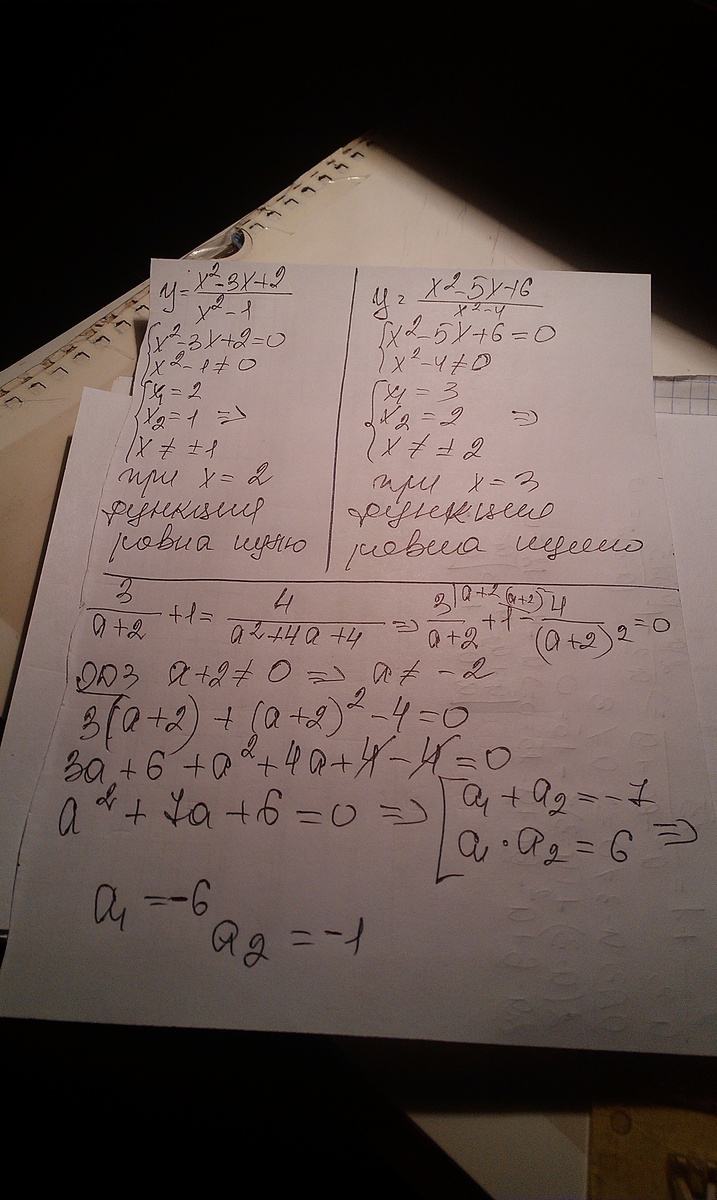 y = x²-3x+2 / x²-1
{x²-3x+2=0
x²-1≠0
{x₁=2
x₂=1 =>
x≠±1
при x=2
функция
равна нулю
y = x²-5x+6 / x²-4
{x²-5x+6=0
x²-4≠0
{x₁=3
x₂=2 =>
x≠±2
при x=3
функция
равна нулю
3/(a+2) +1 = 4/(a²+4a+4) => 3^(a+2)/(a+2) + 1^(a+2)² - 4/(a+2)² =0
ОДЗ a+2≠0 => a≠-2
3(a+2) + (a+2)² -4=0
3a+6+a²+4a+4-4=0
a²+7a+6=0 => [a₁+a₂=-7
a₁·a₂=6 =>
a₁=-6
a₂=-1